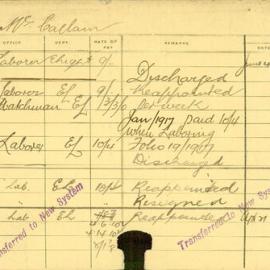 Mc Callum
OFFICE DEPT. RATE OF PAY
Laborer Elight 9/- Discharged
Laborer EL 9/- Reappointed
Watchman EL 1/3/3/6 per week
Jan/1917 paid 10/4
when Laboring
Laborer EL 10/4 Folio 19/1917
Discharged
Lab. EL 10/4 Reappointed
" " " Resigned
Lab EL Reappointed
Transferred to New System
Transferred to New System